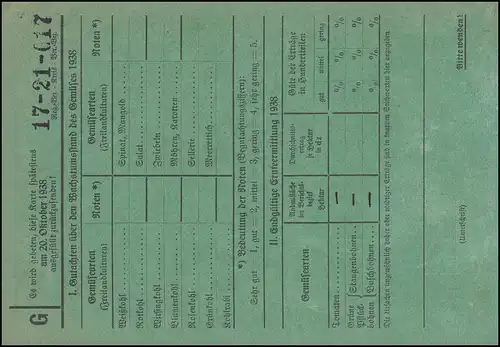 G
Es wird gebeten, diese Karte spätestens
am 20. Oktober 1938
ausgefüllt zurückzusenden!
17-21-017
I. Gutachten über den Wachstumsstand des Gemüses 1938
Gemüsearten
(Freilandkulturen)
Noten *)
Gemüsearten
(Freilandkulturen)
Noten *)
Weißkohl
Spinat, Mangold
Rotkohl
Salat
Wirsingkohl
Zwiebeln
Blumenkohl
Möhren, Karotten
Rosenkohl
Sellerie
Grünkohl
Meerrettich
Kohlrabi
*) Bedeutung der Noten (Begutachtungsziffern):
Sehr gut = 1, gut = 2, mittel = 3, gering = 4, sehr gering = 5.
II. Endgültige Ernteermittlung 1938
Gemüsearten
Anbaufläche
im Berichts-
bezirk
Hektar
Durchschnitts-
ertrag
je Hektar
in dz
Güte der Erträge
in Hundertteilen
gut
mittel
gering
Tomaten
—
%
%
%
Grüne
Pflück-
bohnen
Stangenbohnen
—
%
%
%
Buschbohnen
—
%
%
%
(Unterschrift)
Bitte wenden!